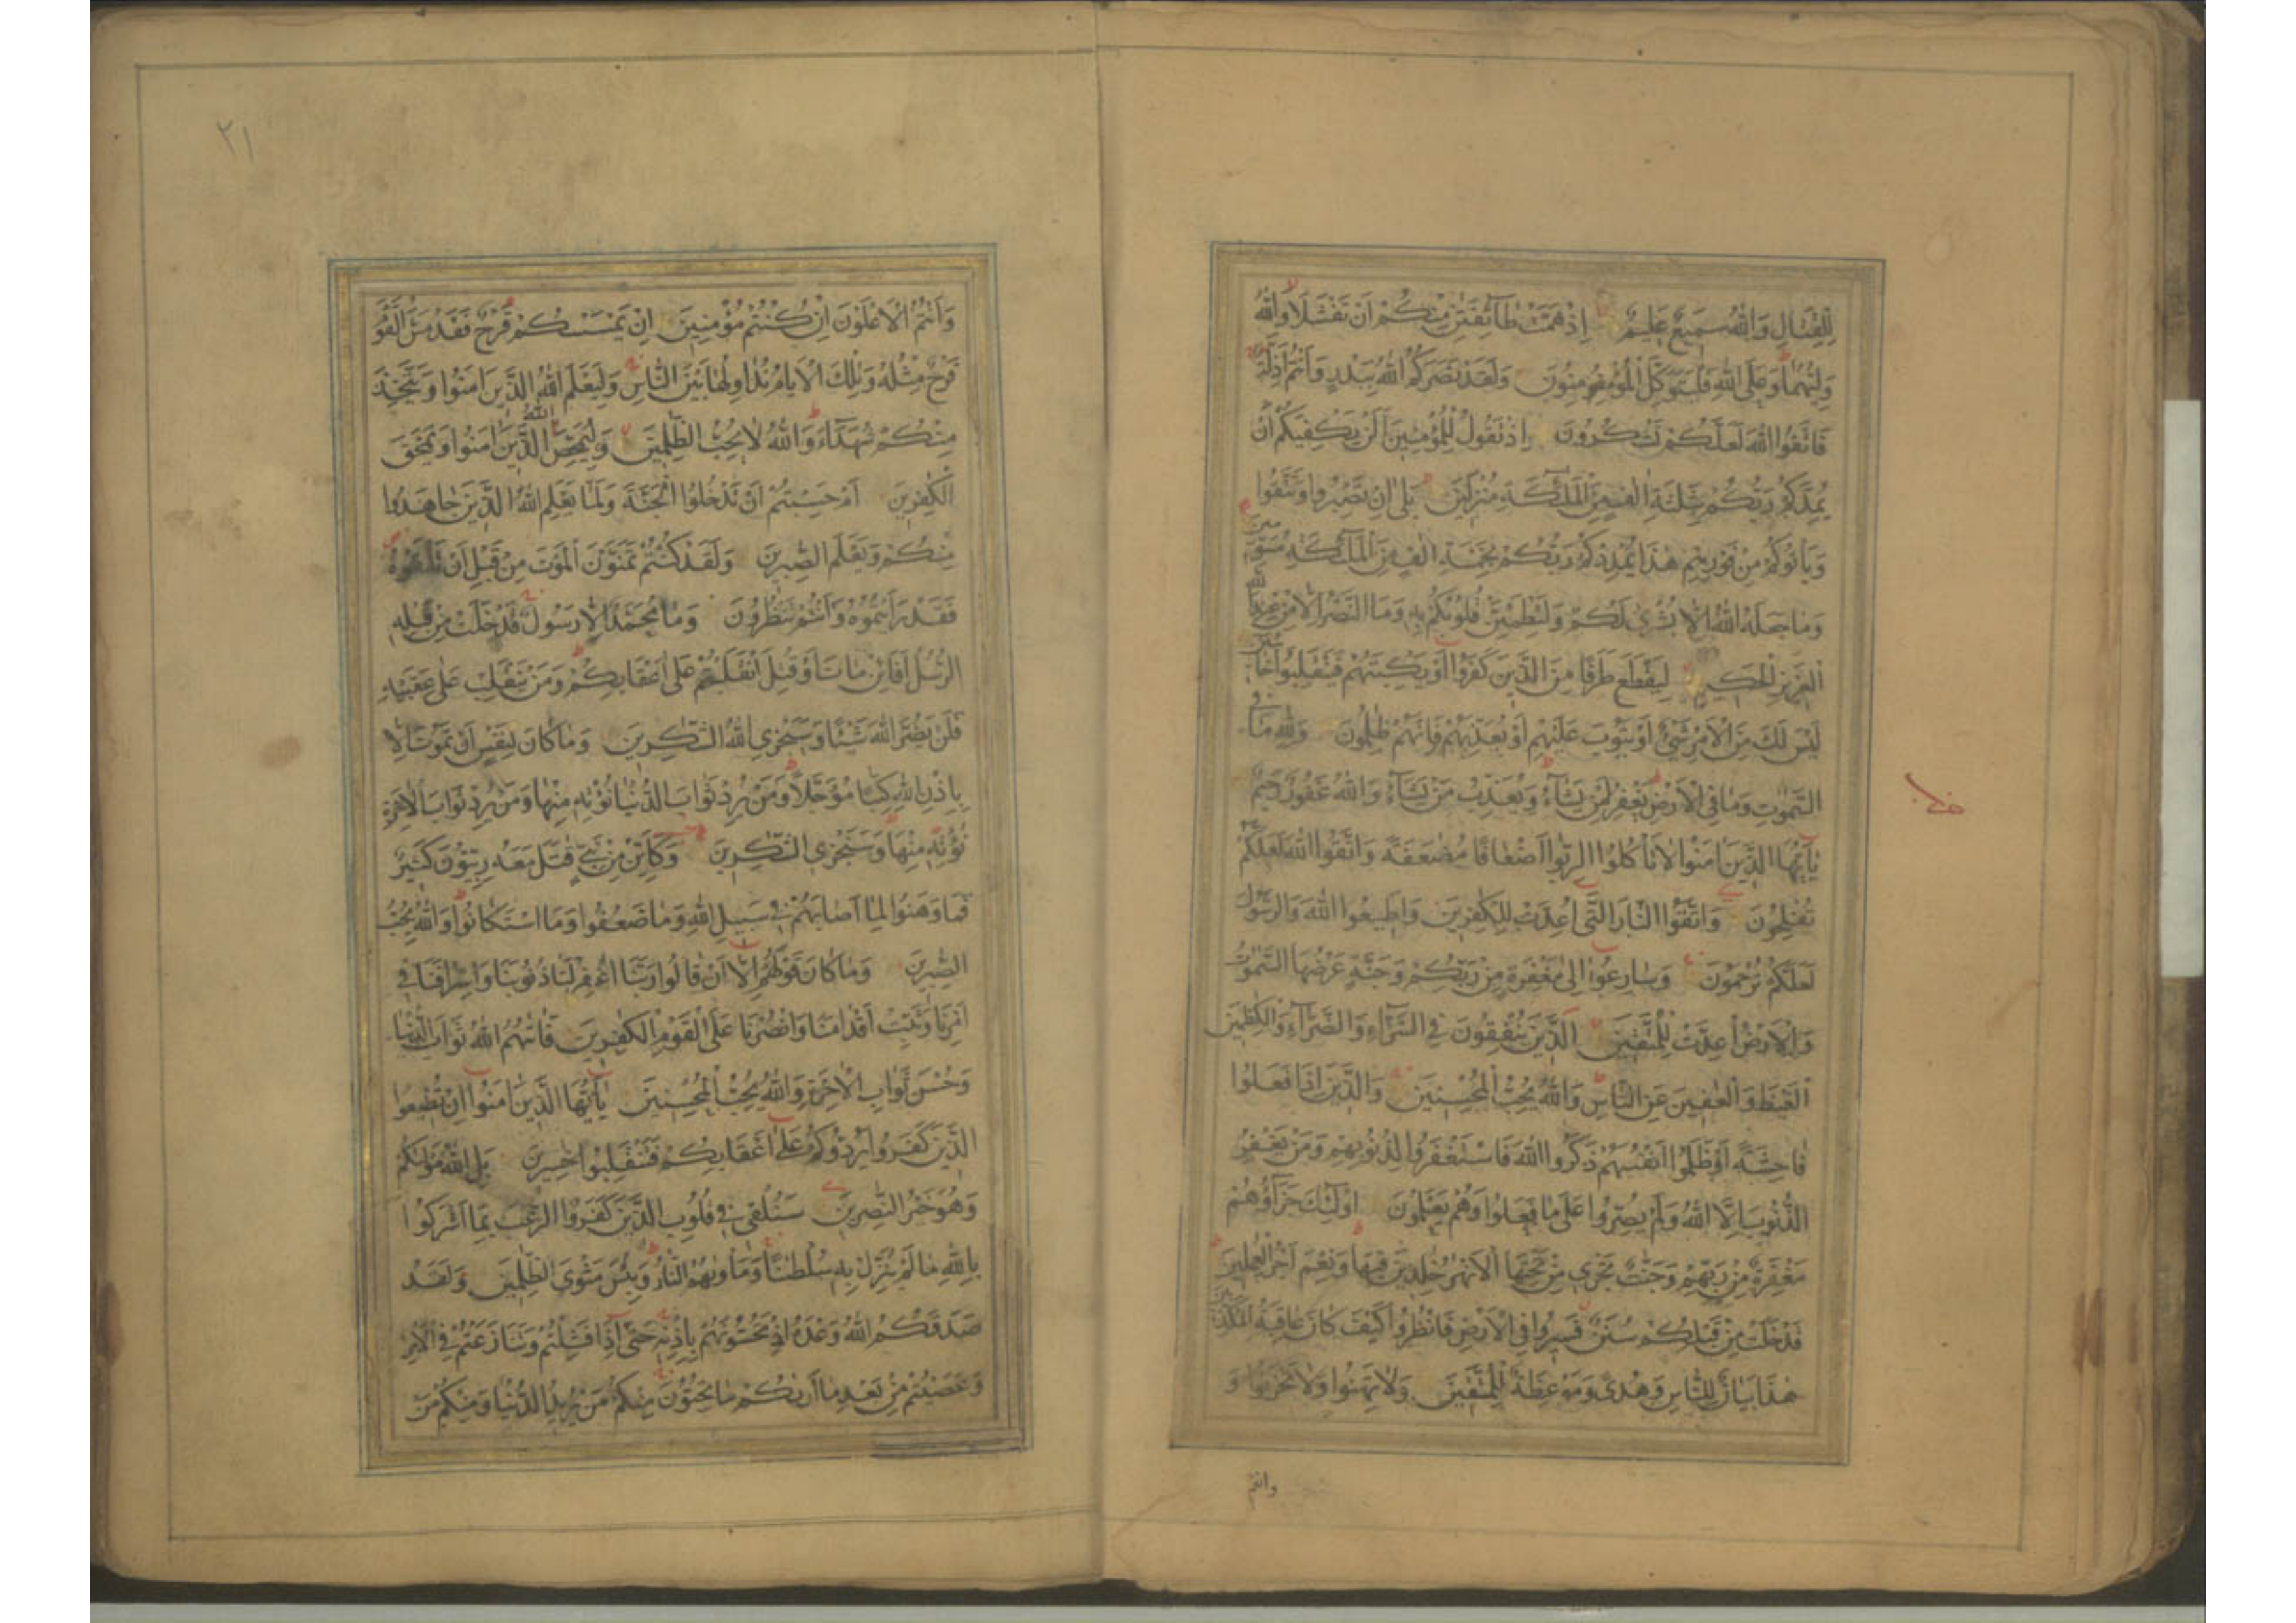 لِلْقِتَالِ وَاللّٰهُ سَمِيعٌ عَلِيمٌ اِذْ هَمَّتْ طَآئِفَتٰنِ مِنْكُمْ اَنْ تَفْشَلَا وَاللّٰهُ
وَلِيُّهُمَا وَعَلَى اللّٰهِ فَلْيَتَوَكَّلِ الْمُؤْمِنُونَ وَلَقَدْ نَصَرَكُمُ اللّٰهُ بِبَدْرٍ وَاَنْتُمْ اَذِلَّةٌ
فَاتَّقُوا اللّٰهَ لَعَلَّكُمْ تَشْكُرُونَ اِذْ تَقُولُ لِلْمُؤْمِنِينَ اَلَنْ يَكْفِيَكُمْ اَنْ
يُمِدَّكُمْ رَبُّكُمْ بِثَلٰثَةِ اٰلٰفٍ مِنَ الْمَلٰٓئِكَةِ مُنْزَلِينَ بَلٰى اِنْ تَصْبِرُوا وَتَتَّقُوا
وَيَاْتُوكُمْ مِنْ فَوْرِهِمْ هٰذَا يُمْدِدْكُمْ رَبُّكُمْ بِخَمْسَةِ اٰلٰفٍ مِنَ الْمَلٰٓئِكَةِ مُسَوِّمِينَ
وَمَا جَعَلَهُ اللّٰهُ اِلَّا بُشْرٰى لَكُمْ وَلِتَطْمَئِنَّ قُلُوبُكُمْ بِهِ وَمَا النَّصْرُ اِلَّا مِنْ عِنْدِ اللّٰهِ
الْعَزِيزِ الْحَكِيمِ لِيَقْطَعَ طَرَفًا مِنَ الَّذِينَ كَفَرُوا اَوْ يَكْبِتَهُمْ فَيَنْقَلِبُوا خَآئِبِينَ
لَيْسَ لَكَ مِنَ الْاَمْرِ شَيْءٌ اَوْ يَتُوبَ عَلَيْهِمْ اَوْ يُعَذِّبَهُمْ فَاِنَّهُمْ ظٰلِمُونَ وَلِلّٰهِ مَا فِي
السَّمٰوٰتِ وَمَا فِي الْاَرْضِ يَغْفِرُ لِمَنْ يَشَآءُ وَيُعَذِّبُ مَنْ يَشَآءُ وَاللّٰهُ غَفُورٌ رَحِيمٌ
يٰٓاَيُّهَا الَّذِينَ اٰمَنُوا لَا تَاْكُلُوا الرِّبٰوا اَضْعَافًا مُضٰعَفَةً وَاتَّقُوا اللّٰهَ لَعَلَّكُمْ
تُفْلِحُونَ وَاتَّقُوا النَّارَ الَّتِي اُعِدَّتْ لِلْكٰفِرِينَ وَاَطِيعُوا اللّٰهَ وَالرَّسُولَ
لَعَلَّكُمْ تُرْحَمُونَ وَسَارِعُوا اِلٰى مَغْفِرَةٍ مِنْ رَبِّكُمْ وَجَنَّةٍ عَرْضُهَا السَّمٰوٰتُ
وَالْاَرْضُ اُعِدَّتْ لِلْمُتَّقِينَ الَّذِينَ يُنْفِقُونَ فِي السَّرَّآءِ وَالضَّرَّآءِ وَالْكٰظِمِينَ
الْغَيْظَ وَالْعٰفِينَ عَنِ النَّاسِ وَاللّٰهُ يُحِبُّ الْمُحْسِنِينَ وَالَّذِينَ اِذَا فَعَلُوا
فَاحِشَةً اَوْ ظَلَمُوا اَنْفُسَهُمْ ذَكَرُوا اللّٰهَ فَاسْتَغْفَرُوا لِذُنُوبِهِمْ وَمَنْ يَغْفِرُ
الذُّنُوبَ اِلَّا اللّٰهُ وَلَمْ يُصِرُّوا عَلٰى مَا فَعَلُوا وَهُمْ يَعْلَمُونَ اُولٰٓئِكَ جَزَآؤُهُمْ
مَغْفِرَةٌ مِنْ رَبِّهِمْ وَجَنّٰتٌ تَجْرِي مِنْ تَحْتِهَا الْاَنْهٰرُ خٰلِدِينَ فِيهَا وَنِعْمَ اَجْرُ الْعٰمِلِينَ
قَدْ خَلَتْ مِنْ قَبْلِكُمْ سُنَنٌ فَسِيرُوا فِي الْاَرْضِ فَانْظُرُوا كَيْفَ كَانَ عَاقِبَةُ الْمُكَذِّبِينَ
هٰذَا بَيَانٌ لِلنَّاسِ وَهُدًى وَمَوْعِظَةٌ لِلْمُتَّقِينَ وَلَا تَهِنُوا وَلَا تَحْزَنُوا وَ
وانتم
٢١
وَاَنْتُمُ الْاَعْلَوْنَ اِنْ كُنْتُمْ مُؤْمِنِينَ اِنْ يَمْسَسْكُمْ قَرْحٌ فَقَدْ مَسَّ الْقَوْمَ
قَرْحٌ مِثْلُهُ وَتِلْكَ الْاَيَّامُ نُدَاوِلُهَا بَيْنَ النَّاسِ وَلِيَعْلَمَ اللّٰهُ الَّذِينَ اٰمَنُوا وَيَتَّخِذَ
مِنْكُمْ شُهَدَآءَ وَاللّٰهُ لَا يُحِبُّ الظّٰلِمِينَ وَلِيُمَحِّصَ اللّٰهُ الَّذِينَ اٰمَنُوا وَيَمْحَقَ
الْكٰفِرِينَ اَمْ حَسِبْتُمْ اَنْ تَدْخُلُوا الْجَنَّةَ وَلَمَّا يَعْلَمِ اللّٰهُ الَّذِينَ جَاهَدُوا
مِنْكُمْ وَيَعْلَمَ الصّٰبِرِينَ وَلَقَدْ كُنْتُمْ تَمَنَّوْنَ الْمَوْتَ مِنْ قَبْلِ اَنْ تَلْقَوْهُ
فَقَدْ رَاَيْتُمُوهُ وَاَنْتُمْ تَنْظُرُونَ وَمَا مُحَمَّدٌ اِلَّا رَسُولٌ قَدْ خَلَتْ مِنْ قَبْلِهِ
الرُّسُلُ اَفَائِنْ مَاتَ اَوْ قُتِلَ انْقَلَبْتُمْ عَلٰى اَعْقَابِكُمْ وَمَنْ يَنْقَلِبْ عَلٰى عَقِبَيْهِ
فَلَنْ يَضُرَّ اللّٰهَ شَيْئًا وَسَيَجْزِي اللّٰهُ الشّٰكِرِينَ وَمَا كَانَ لِنَفْسٍ اَنْ تَمُوتَ اِلَّا
بِاِذْنِ اللّٰهِ كِتٰبًا مُؤَجَّلًا وَمَنْ يُرِدْ ثَوَابَ الدُّنْيَا نُؤْتِهِ مِنْهَا وَمَنْ يُرِدْ ثَوَابَ الْاٰخِرَةِ
نُؤْتِهِ مِنْهَا وَسَنَجْزِي الشّٰكِرِينَ وَكَاَيِّنْ مِنْ نَبِيٍّ قٰتَلَ مَعَهُ رِبِّيُّونَ كَثِيرٌ
فَمَا وَهَنُوا لِمَا اَصَابَهُمْ فِي سَبِيلِ اللّٰهِ وَمَا ضَعُفُوا وَمَا اسْتَكَانُوا وَاللّٰهُ يُحِبُّ
الصّٰبِرِينَ وَمَا كَانَ قَوْلَهُمْ اِلَّا اَنْ قَالُوا رَبَّنَا اغْفِرْ لَنَا ذُنُوبَنَا وَاِسْرَافَنَا فِي
اَمْرِنَا وَثَبِّتْ اَقْدَامَنَا وَانْصُرْنَا عَلَى الْقَوْمِ الْكٰفِرِينَ فَاٰتٰهُمُ اللّٰهُ ثَوَابَ الدُّنْيَا
وَحُسْنَ ثَوَابِ الْاٰخِرَةِ وَاللّٰهُ يُحِبُّ الْمُحْسِنِينَ يٰٓاَيُّهَا الَّذِينَ اٰمَنُوا اِنْ تُطِيعُوا
الَّذِينَ كَفَرُوا يَرُدُّوكُمْ عَلٰى اَعْقَابِكُمْ فَتَنْقَلِبُوا خٰسِرِينَ بَلِ اللّٰهُ مَوْلٰىكُمْ
وَهُوَ خَيْرُ النّٰصِرِينَ سَنُلْقِي فِي قُلُوبِ الَّذِينَ كَفَرُوا الرُّعْبَ بِمَا اَشْرَكُوا
بِاللّٰهِ مَا لَمْ يُنَزِّلْ بِهِ سُلْطٰنًا وَمَاْوٰىهُمُ النَّارُ وَبِئْسَ مَثْوَى الظّٰلِمِينَ وَلَقَدْ
صَدَقَكُمُ اللّٰهُ وَعْدَهُ اِذْ تَحُسُّونَهُمْ بِاِذْنِهِ حَتّٰى اِذَا فَشِلْتُمْ وَتَنَازَعْتُمْ فِي الْاَمْرِ
وَعَصَيْتُمْ مِنْ بَعْدِ مَا اَرٰىكُمْ مَا تُحِبُّونَ مِنْكُمْ مَنْ يُرِيدُ الدُّنْيَا وَمِنْكُمْ مَنْ